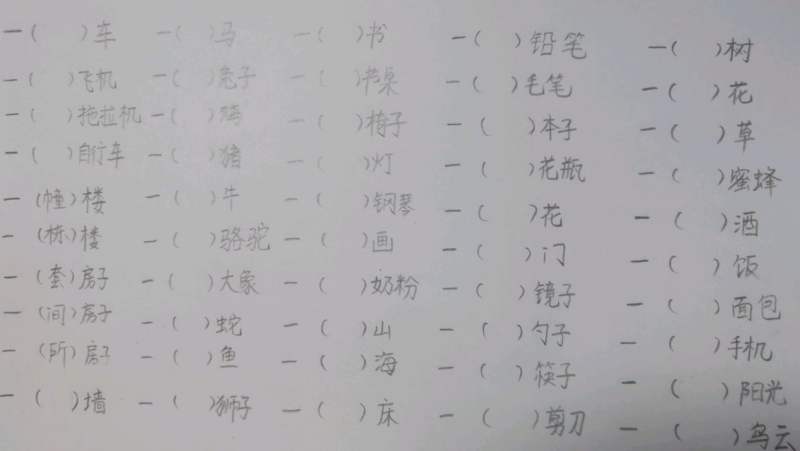 一(　)车 一(　)马 一(　)书 一(　)铅笔 一(　)树
一(　)飞机 一(　)兔子 一(　)书桌 一(　)毛笔 一(　)花
一(　)拖拉机 一(　) 一(　)椅子 一(　)本子 一(　)草
一(　)自行车 一(　)猪 一(　)灯 一(　)花瓶 一(　)蜜蜂
一(幢)楼 一(　)牛 一(　)钢琴 一(　)花 一(　)酒
一(栋)楼 一(　)骆驼 一(　)画 一(　)门 一(　)饭
一(套)房子 一(　)大象 一(　)奶粉 一(　)镜子 一(　)面包
一(间)房子 一(　)蛇 一(　)山 一(　)勺子 一(　)手机
一(所)房子 一(　)鱼 一(　)海 一(　)筷子 一(　)阳光
一(　)墙 一(　)狮子 一(　)床 一(　)剪刀 一(　)乌云